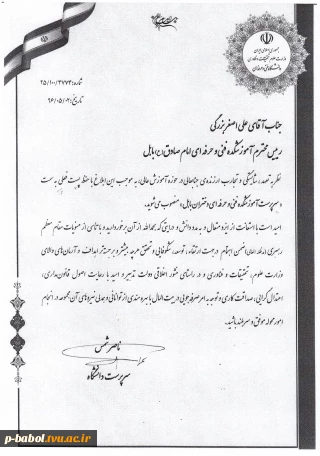 جمهوری اسلامی ایران
وزارت علوم، تحقیقات و فناوری
دانشگاه فنی و حرفه‌ای
شماره: ۲۵/۱۰۰/۳۷۷۴
تاریخ: ۹۶/۰۵/۰۲
جناب آقای علی اصغر بزرگی
رییس محترم آموزشکده فنی و حرفه ای امام صادق(ع) بابل
نظر به تعهد، شایستگی و تجارب ارزنده‌ی جنابعالی در حوزه آموزش عالی، به موجب این ابلاغ با حفظ پست فعلی به سمت
«سرپرست آموزشکده فنی و حرفه ای دختران بابل» منصوب می شوید.
امید است با استعانت از ایزد متعال و به مدد دانش و درایتی که بحمدالله از آن برخوردارید و با تاسی از منویات مقام معظم
رهبری (مدظله العالی) انجام در جهت ارتقاء، توسعه، شکوفایی و تحقق هرچه بیشتر و برتر اهداف و آرمان‌های والای
وزارت علوم، تحقیقات و فناوری و در راستای منشور اخلاقی دولت تدبیر و امید با رعایت اصول قانون‌مداری،
اعتدال گرایی، صداقت کاری و توجه به امر صرفه جویی در بیت المال با بهره مندی از توانایی و همدلی نیروهای آن مجموعه در انجام
امور محوله موفق و سربلند باشید.
ناصر شمس
سرپرست دانشگاه
p-babol.tvu.ac.ir